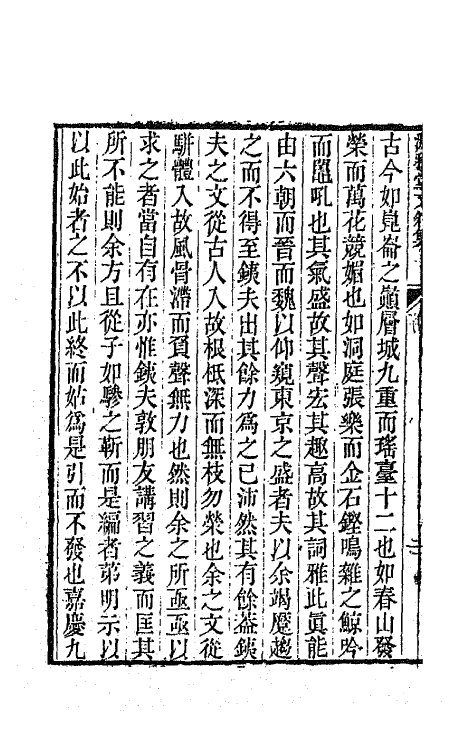 古今如崑崙之巔層城九重而瑤臺十二也如春山發
榮而萬花競媚也如洞庭張樂而金石鏗鳴雜之鯨呿
而鼉吼也其氣盛故其聲宏其趣高故其詞雅此眞能
由六朝而晉而魏以仰窺東京之盛者夫以余竭蹷趨
之而不得至鐵夫出其餘力爲之已沛然其有餘蓋鐵
夫之文從古人入故根低深而無枝勿榮也余之文從
駢體入故風骨滯而負聲無力也然則余之所亟亟以
求之者當自有在亦惟鐵夫敦朋友講習之義而匡其
所不能則余方且從子如驂之靳而是編者第明示以
以此始者之不以此終而姑爲是引而不發也嘉慶九